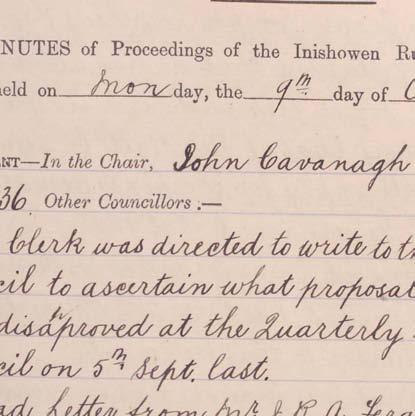 NUTES of Proceedings of the Inishowen Ru
eld on Monday, the 9th day of
ENT—In the Chair, John Cavanagh
36 Other Councillors :—
Clerk was directed to write to th
cil to ascertain what proposal
disapproved at the Quarterly
cil on 5th Sept. last.
ad letter from Mr J. R. A.